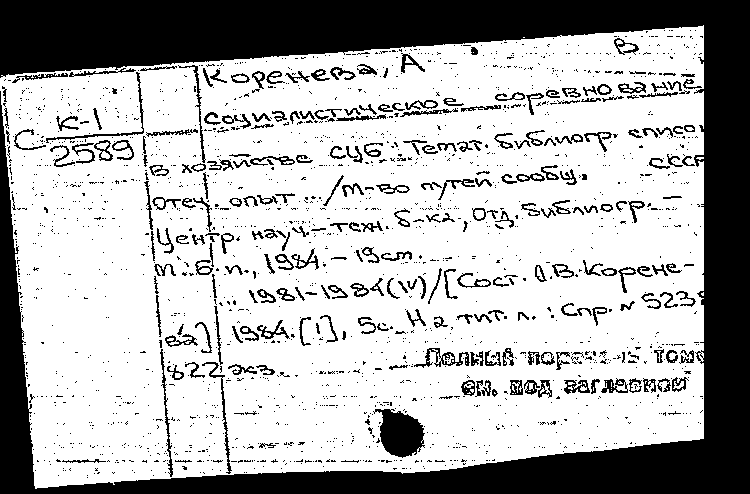 В
Коренева, А
С К-1
2589
социалистическое соревнование
в хозяйстве СЦБ : Темат. библиогр. списо
отеч. опыт ... /М-во путей сообщ. СССР
Центр. науч.-техн. б-ка, Отд. библиогр. —
М. : Б. и., 1984. – 19 см.
... 1981-1984(IV)/[Сост. О.В. Корене-
ва] 1984. [1], 5с. На тит. л. : Спр. N 5238
822 экз.
Полный перечень томо
см. под заглавием